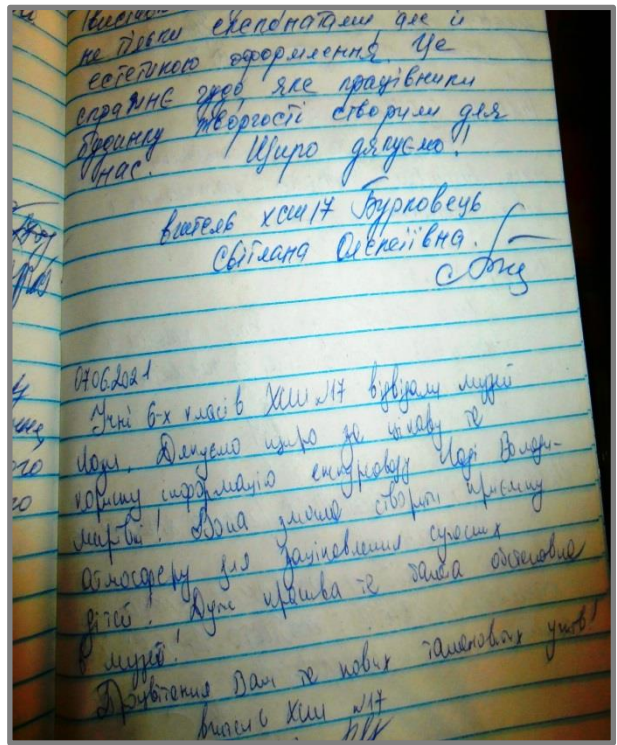 не тільки експонатами, але й
естетикою оформлення. Це
справжнє чудо, яке працівники
будинку творчості створили для
нас. Щиро дякуємо!
вчитель ХСШ 17 Бурковець
Світлана Олексіївна.
07.06.2021
Учні 6-х класів ХСШ №17 відвідали музей
Дякуємо щиро за цікаву та
корисну інформацію екскурсоводу Наді Володи-
мирівні! Вона змогла створити приємну
атмосферу для зацікавлення сучасних
дітей! Дуже красива та обстановка
в музеї!
Процвітання Вам та нових талановитих учнів!
вчитель ХСШ №17